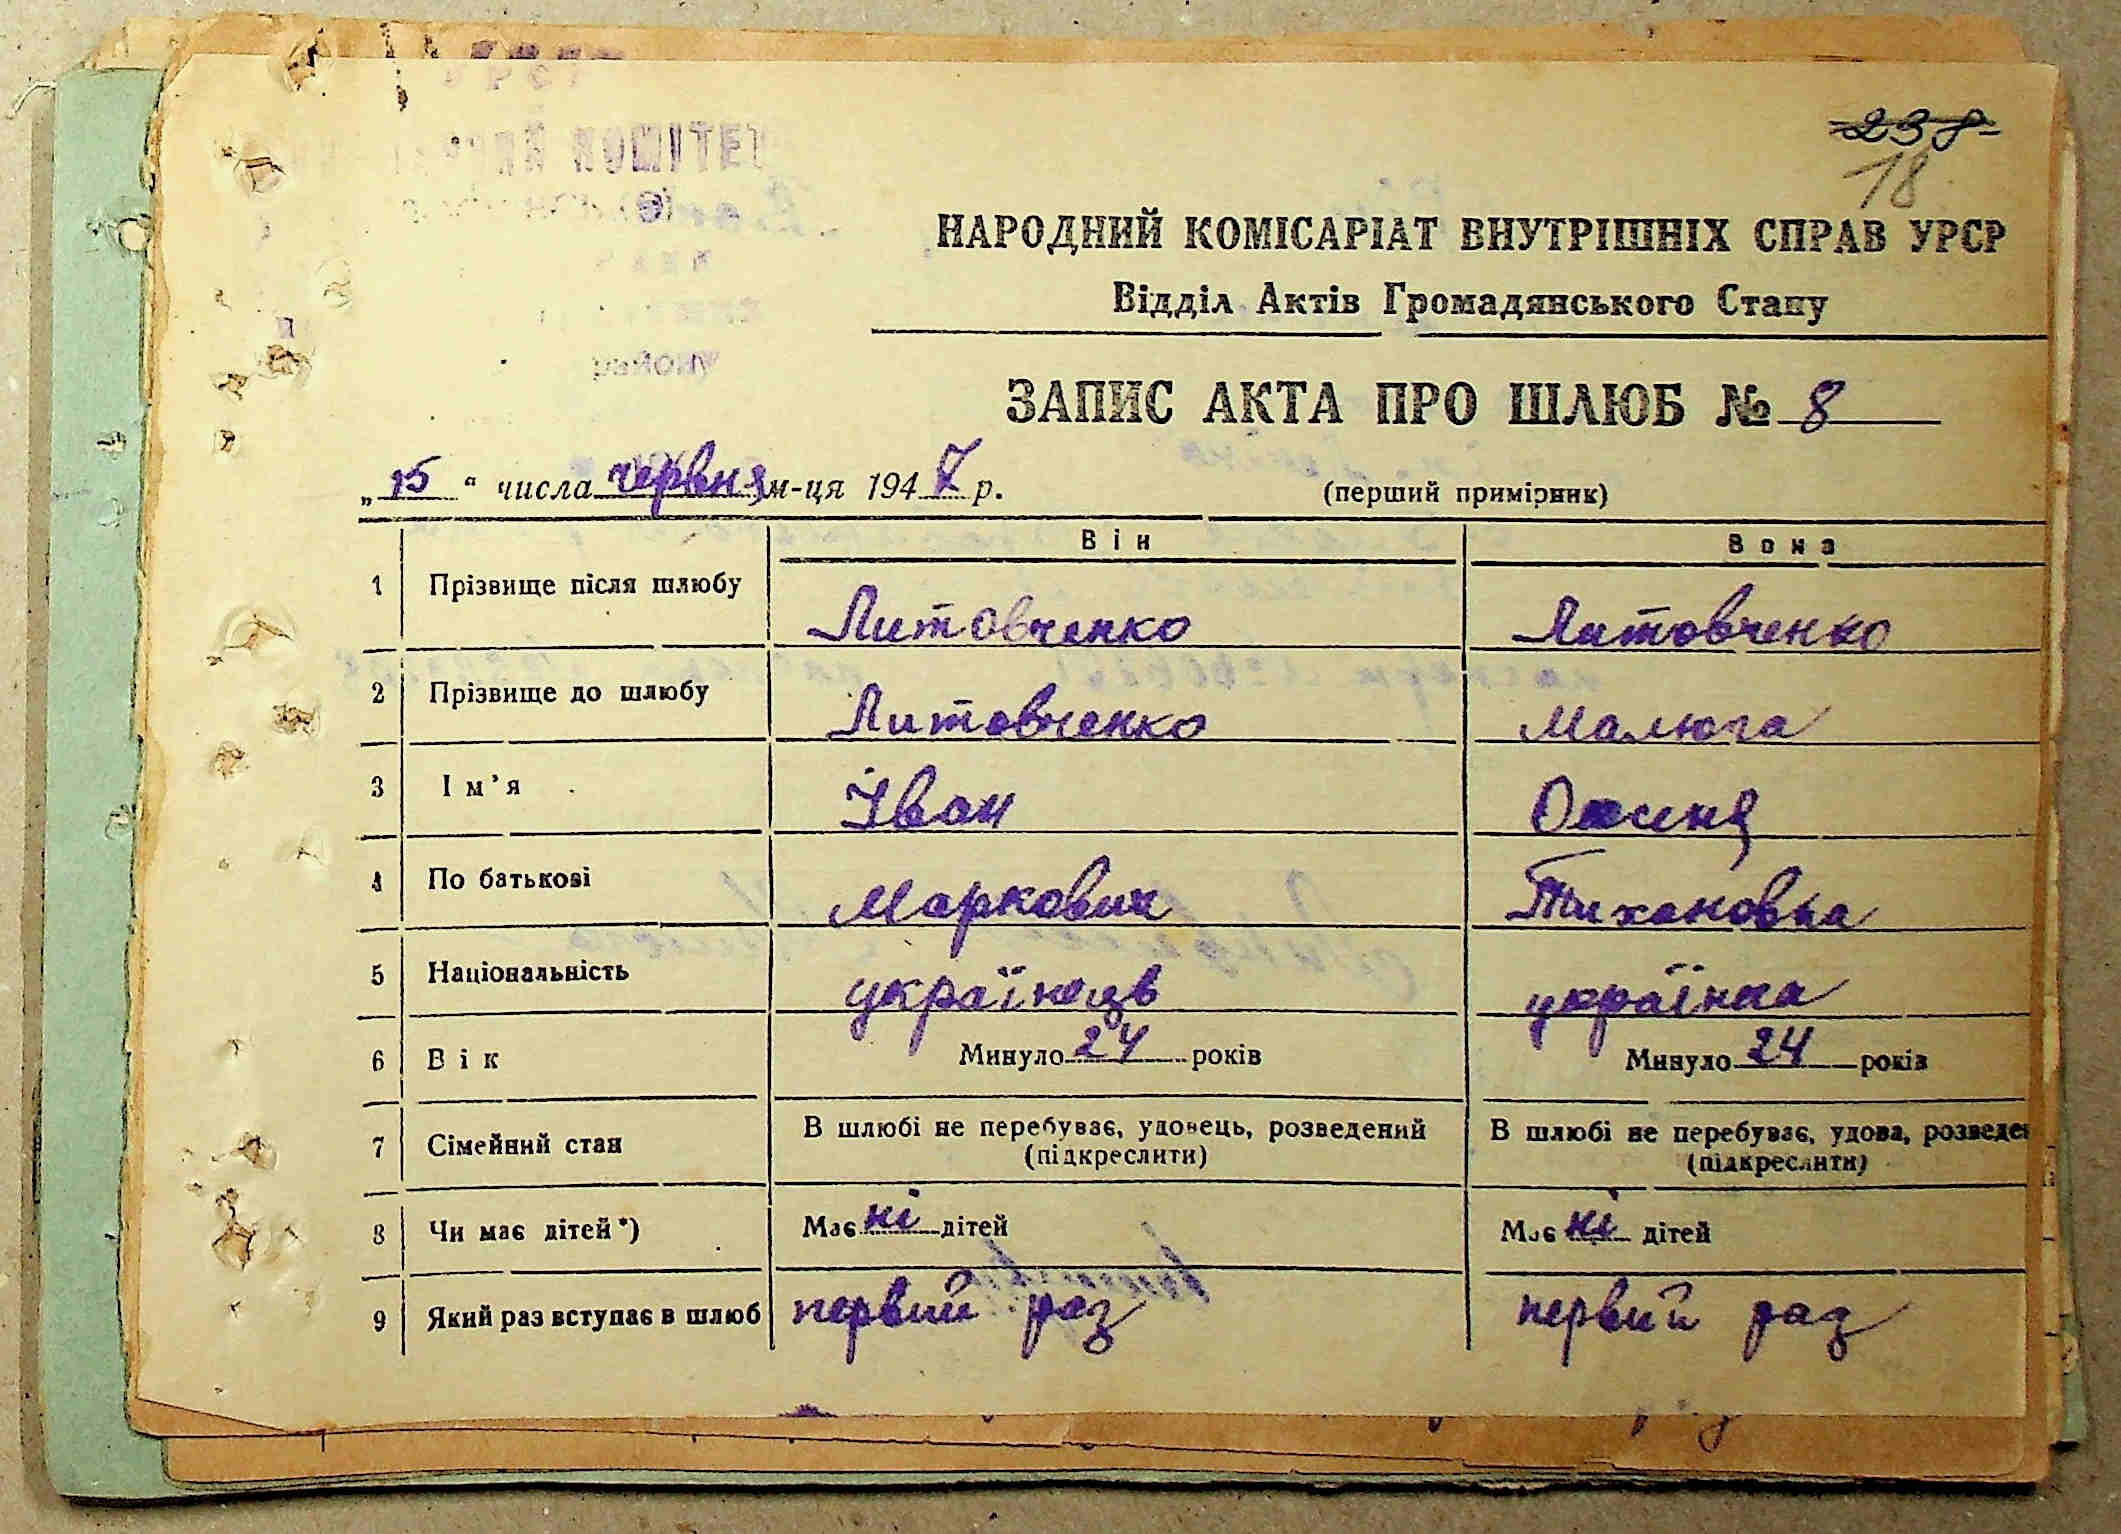 КОМІТЕТ
району
238
18
НАРОДНИЙ КОМІСАРІАТ ВНУТРІШНІХ СПРАВ УРСР
Відділ Актів Громадянського Стану
ЗАПИС АКТА ПРО ШЛЮБ № 8
„15“ числа червня м-ця 1947 р. (перший примірник)
Він Вона
1 Прізвище після шлюбу Литовченко Литовченко
2 Прізвище до шлюбу Литовченко Малюга
3 Ім’я Іван Оксеня
4 По батькові Маркович Тихановна
5 Національність українець українка
6 Вік Минуло 24 років Минуло 24 років
7 Сімейний стан В шлюбі не перебуває, удовець, розведений В шлюбі не перебуває, удова, розведе
(підкреслити) (підкреслити)
8 Чи має дітей*) Має ні дітей Має ні дітей
9 Який раз вступає в шлюб первий раз первий раз